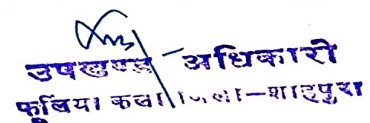 उपखण्ड अधिकारी
फूलिया कलां जिला-शाहपुरा